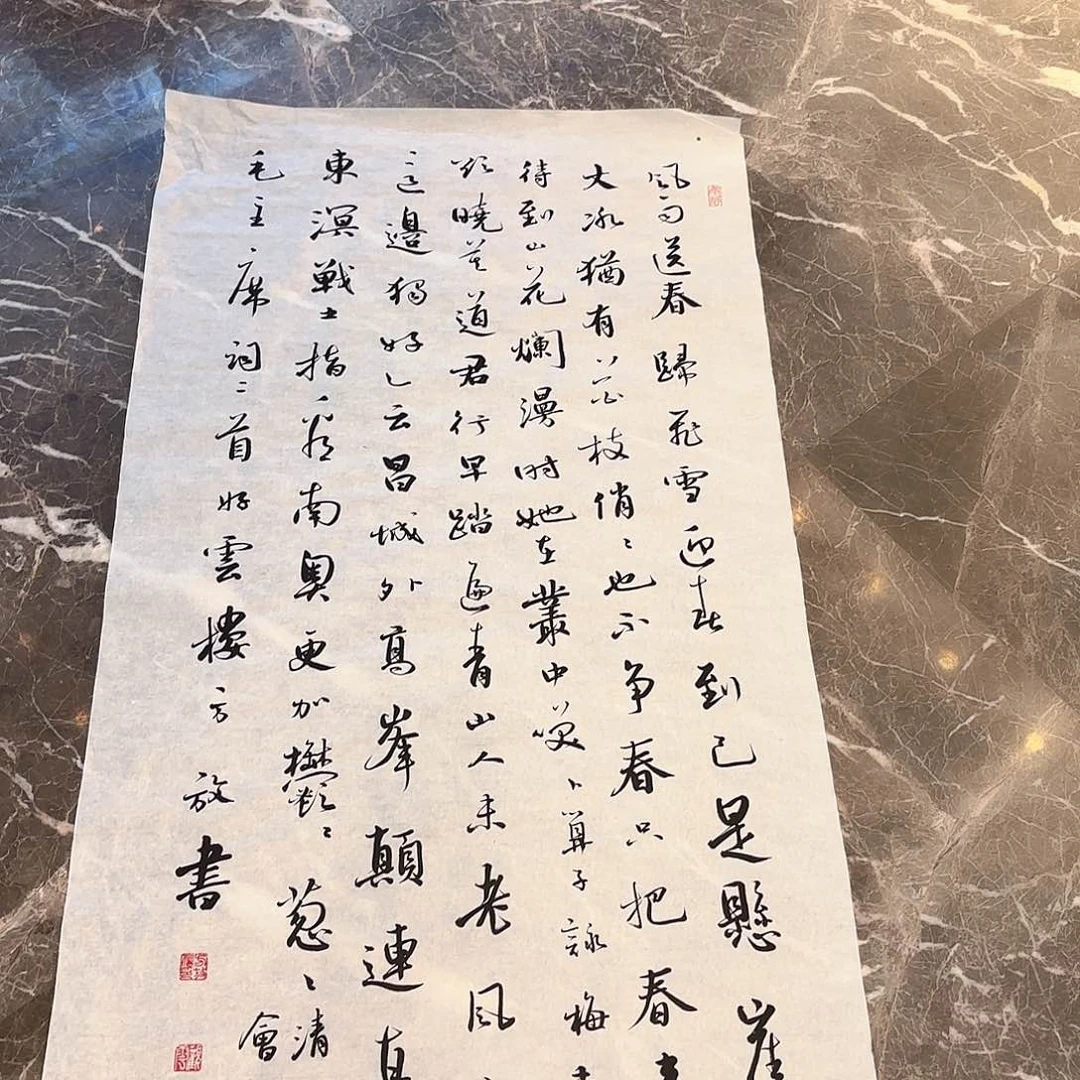 风雨送春歸飛雪迎春到已是懸崖
丈冰猶有花枝俏〻也不争春只把春
待到山花爛漫时她在叢中笑卜算子詠梅
欲曉莫道君行早踏遍青山人未老风
〻这邊獨好会昌城外高峯顛連直
東溟戰士指看南粤更加鬱〻蔥〻清
會
毛主席词二首好雲樓方放書